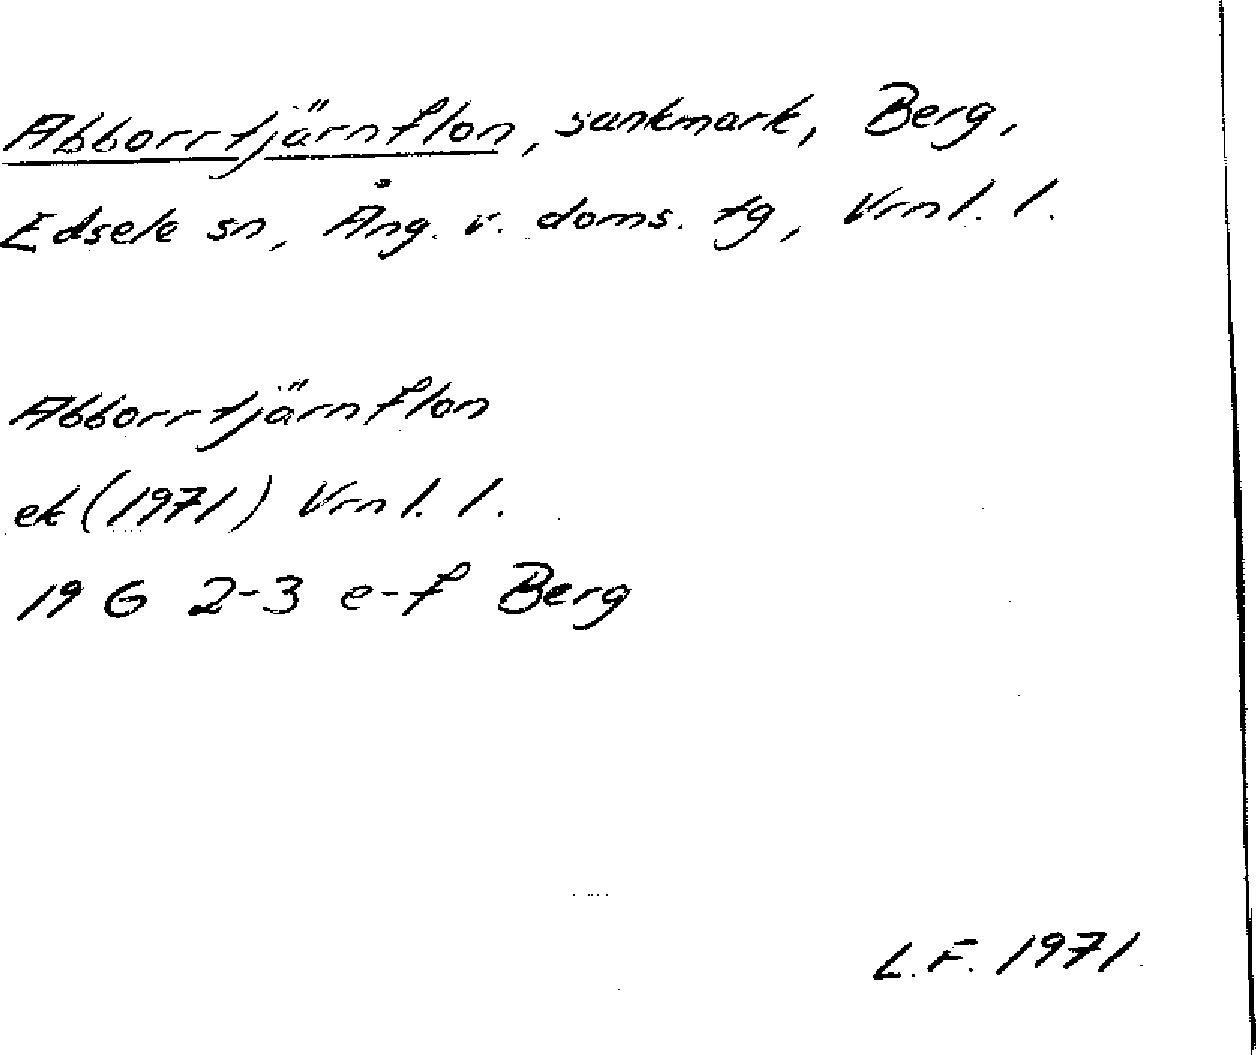 Abborrtjärnflon, sankmark, Berg,
Edsele sn, Ång. v. doms. tg, Vrnl. l.
Abborrtjärnflon
ek (1971) Vrnl. l.
19 G 2-3 e-f Berg
L.F. 1971